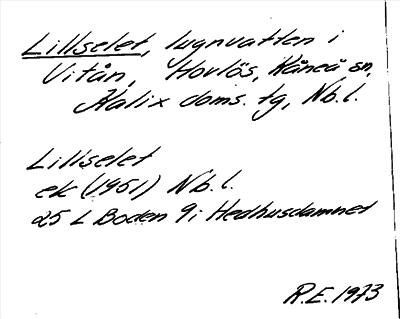 Lillselet, lugnvatten i
Vitån, Hovlös, Råneå sn,
Kalix doms. tg, Nb. l.
Lillselet
ek (1961) Nb. l.
25 L Boden 9i Hedhusdamnet
R.E. 1973